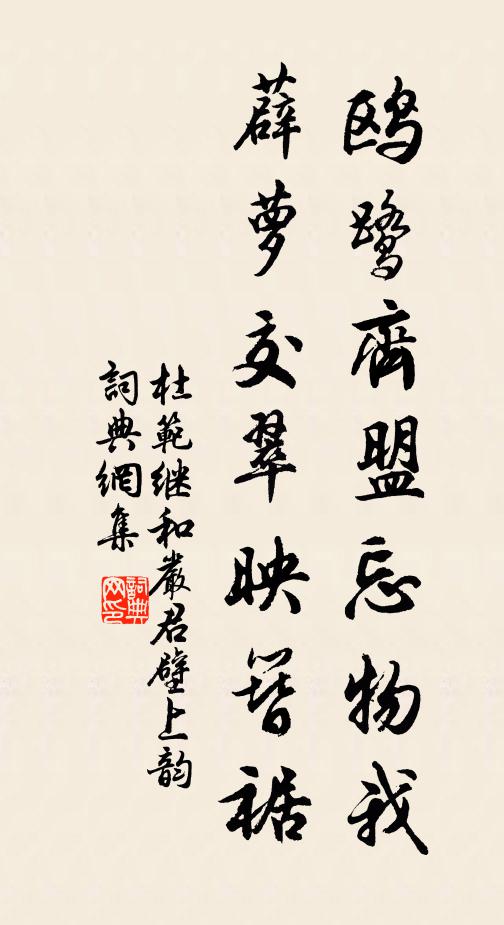 鸥鹭齊盟忘物我
薜萝交翠映簪裾
杜範继和嚴君壁上韵
詞典網集
詞典网印